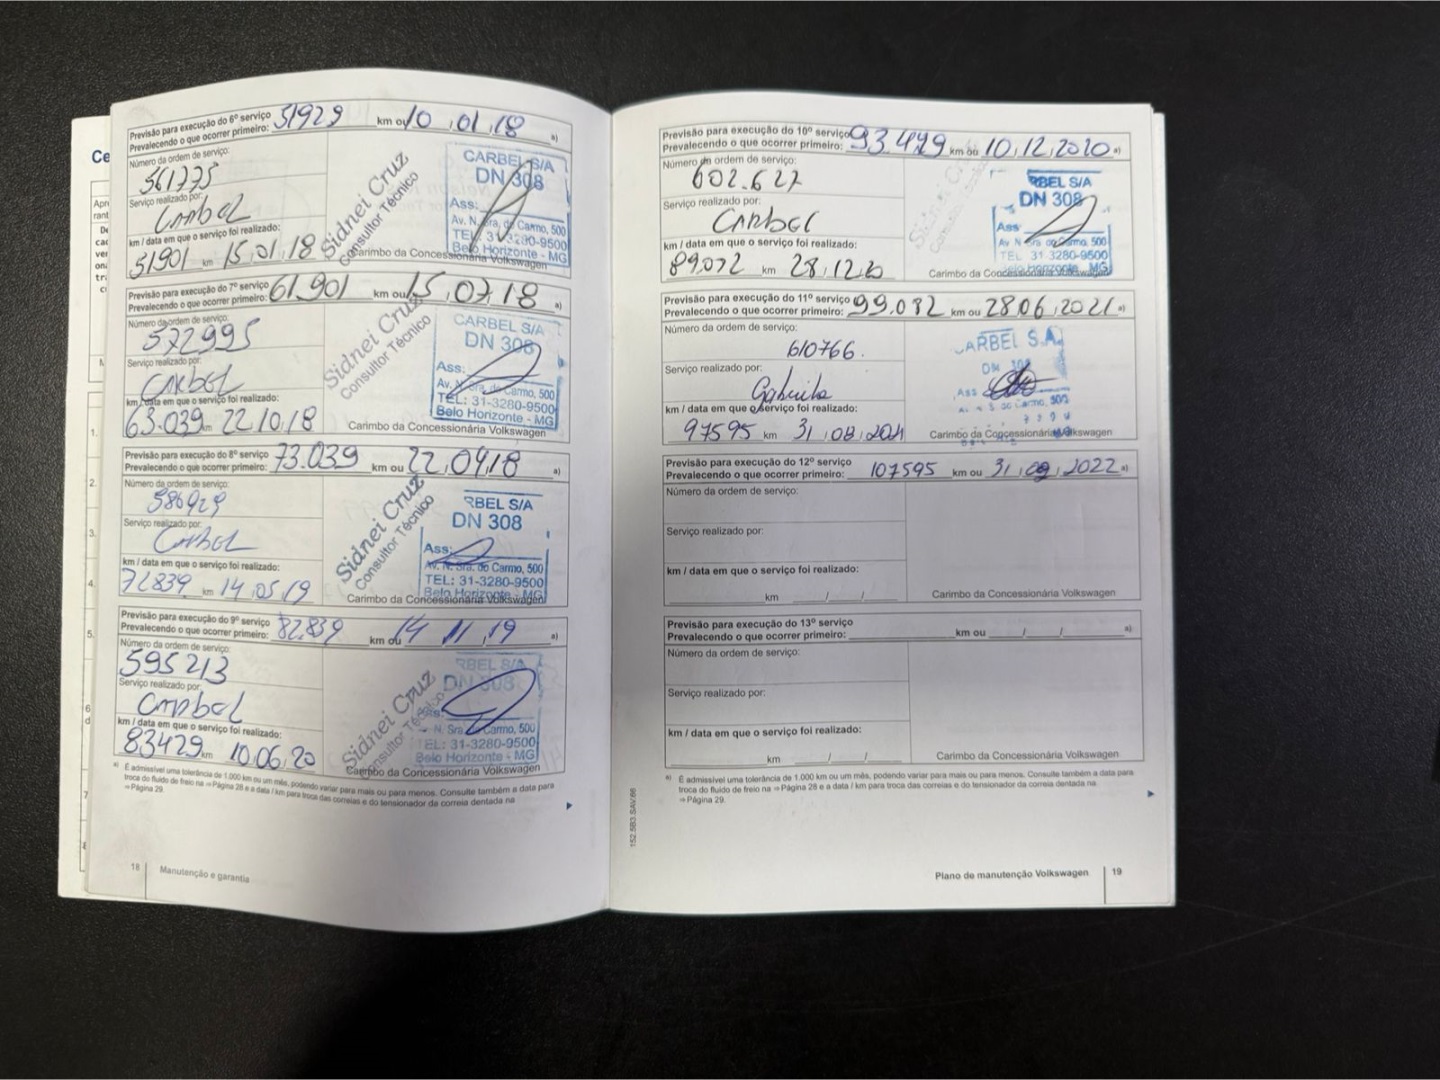 Ce
Previsão para execução do 6º serviço
Prevalecendo o que ocorrer primeiro: 51929 km ou 10,01,18 a)
Número da ordem de serviço:
561775
Serviço realizado por:
Carbel
km / data em que o serviço foi realizado:
51901 km 15,01,18
Sidnei Cruz
Consultor Técnico
CARBEL S/A
DN 308
Ass:
Av. N. Sra. do Carmo, 500
TEL: 31-3280-9500
Belo Horizonte - MG
Carimbo da Concessionária Volkswagen
Previsão para execução do 7º serviço
Prevalecendo o que ocorrer primeiro: 61.901 km ou 15,07,18 a)
Número da ordem de serviço:
572995
Serviço realizado por:
Carbel
km / data em que o serviço foi realizado:
63.039 km 22,10,18
Sidnei Cruz
Consultor Técnico
CARBEL S/A
DN 308
Ass:
Av. N. Sra. do Carmo, 500
TEL: 31-3280-9500
Belo Horizonte - MG
Carimbo da Concessionária Volkswagen
Previsão para execução do 8º serviço
Prevalecendo o que ocorrer primeiro: 73.039 km ou 22,04,18 a)
Número da ordem de serviço:
586929
Serviço realizado por:
Carbel
km / data em que o serviço foi realizado:
72839 km 14,05,19
Sidnei Cruz
Consultor Técnico
RBEL S/A
DN 308
Ass:
Av. N. Sra. do Carmo, 500
TEL: 31-3280-9500
Belo Horizonte - MG
Carimbo da Concessionária Volkswagen
Previsão para execução do 9º serviço
Prevalecendo o que ocorrer primeiro: 82.839 km ou 14,11,19 a)
Número da ordem de serviço:
595213
Serviço realizado por:
Carbel
km / data em que o serviço foi realizado:
83429 km 10,06,20
Sidnei Cruz
Consultor Técnico
RBEL S/A
DN 308
N. Sra. do Carmo, 500
TEL: 31-3280-9500
Belo Horizonte - MG
Carimbo da Concessionária Volkswagen
a) É admissível uma tolerância de 1.000 km ou um mês, podendo variar para mais ou para menos. Consulte também a data para
troca do fluido de freio na ⇒ Página 28 e a data / km para troca das correias e do tensionador da correia dentada na
⇒ Página 29.
18 Manutenção e garantia
Previsão para execução do 10º serviço
Prevalecendo o que ocorrer primeiro: 93.429 km ou 10,12,2020 a)
Número da ordem de serviço:
602.627
Serviço realizado por:
Carbel
km / data em que o serviço foi realizado:
89.072 km 28,12,20
RBEL S/A
DN 308
Ass
Av N Sra do Carmo, 500
TEL 31-3280-9500
Belo Horizonte - MG
Carimbo da Concessionária Volkswagen
Previsão para execução do 11º serviço
Prevalecendo o que ocorrer primeiro: 99.082 km ou 28,06,2021 a)
Número da ordem de serviço:
610766.
Serviço realizado por:
Gabriela
km / data em que o serviço foi realizado:
97595 km 31,08,2021
ARBEL S.A.
DN 308
Ass
Carimbo da Concessionária Volkswagen
Previsão para execução do 12º serviço
Prevalecendo o que ocorrer primeiro: 107595 km ou 31,08,2022 a)
Número da ordem de serviço:
Serviço realizado por:
km / data em que o serviço foi realizado:
km / /
Carimbo da Concessionária Volkswagen
Previsão para execução do 13º serviço
Prevalecendo o que ocorrer primeiro: km ou / / a)
Número da ordem de serviço:
Serviço realizado por:
km / data em que o serviço foi realizado:
km / /
Carimbo da Concessionária Volkswagen
a) É admissível uma tolerância de 1.000 km ou um mês, podendo variar para mais ou para menos. Consulte também a data para
troca do fluido de freio na ⇒ Página 28 e a data / km para troca das correias e do tensionador da correia dentada na
⇒ Página 29.
152.5B3.SAV.66
Plano de manutenção Volkswagen 19